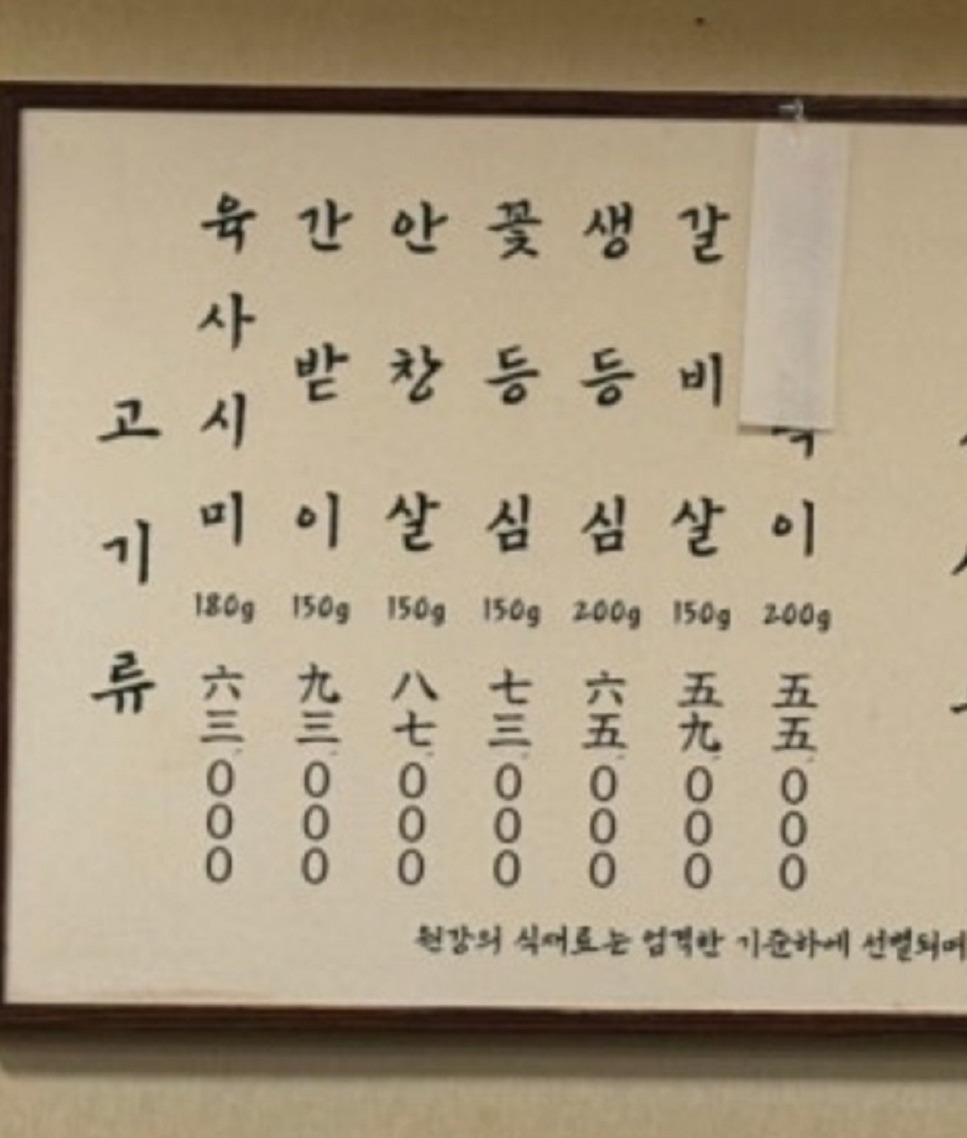 고기류
육사시미 180g 六三,000
간받이 150g 九三,000
안창살 150g 八七,000
꽃등심 150g 七三,000
생등심 200g 六五,000
갈비살 150g 五九,000
이 200g 五五,000
원강의 식재료는 엄격한 기준하에 선별되며